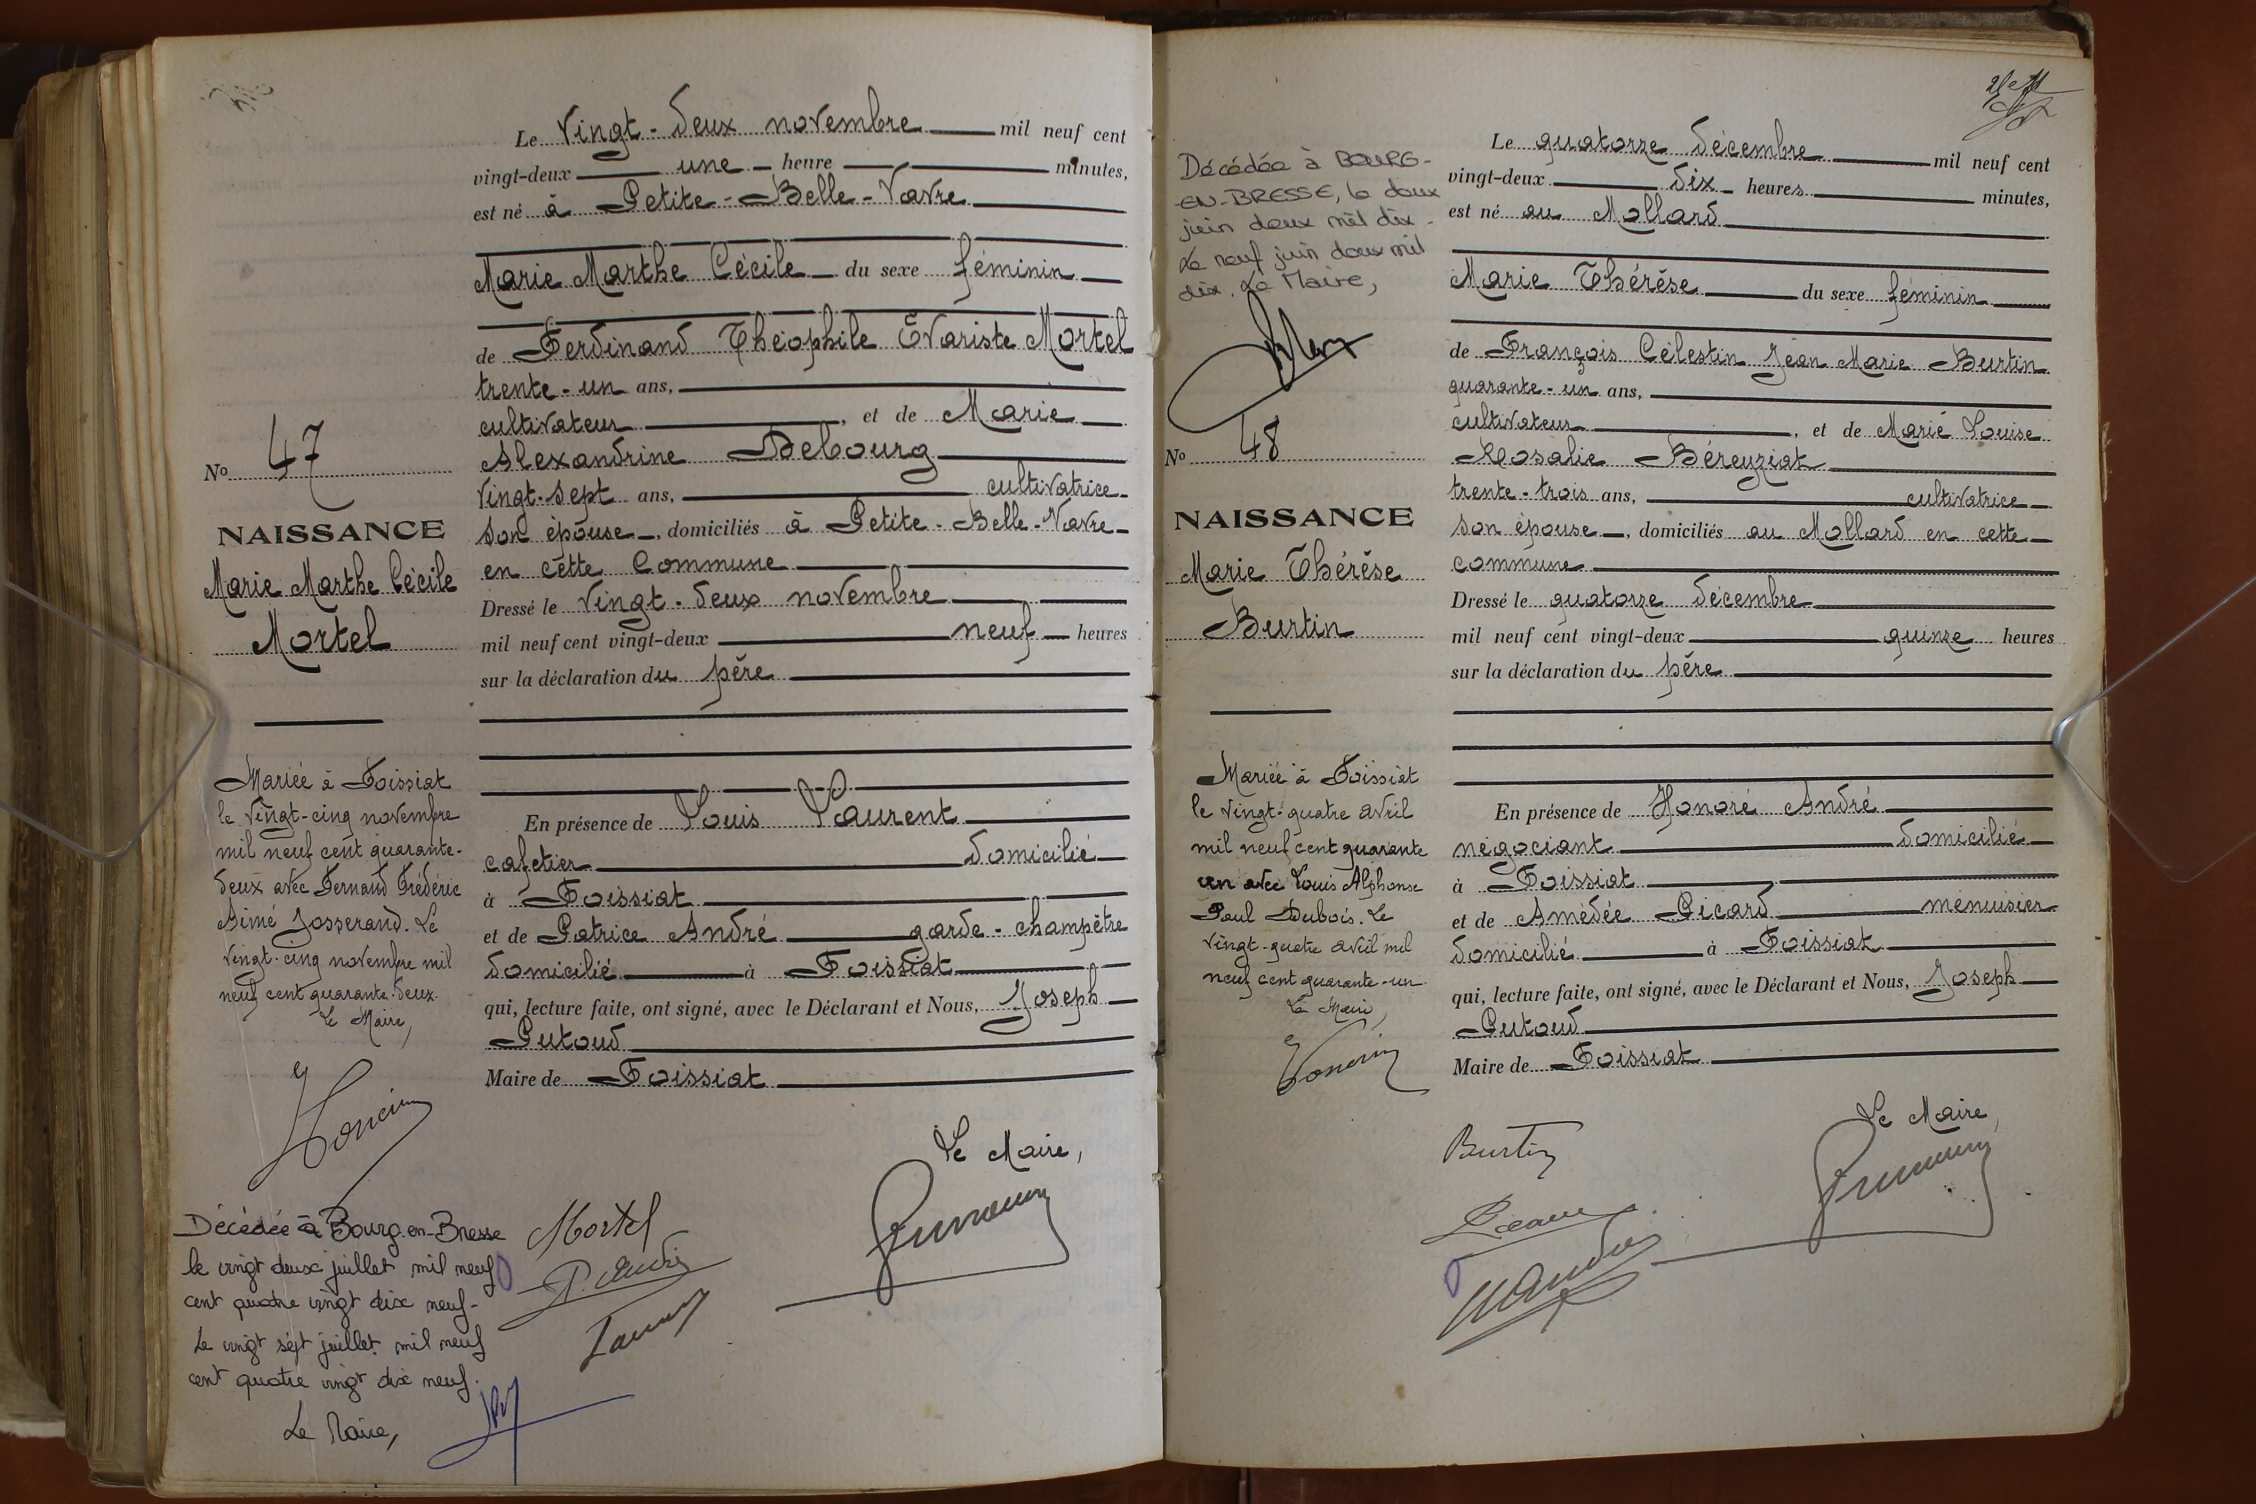 Le vingt-deux novembre mil neuf cent
vingt-deux une heure minutes,
est né à Petite-Belle-Vavre
Marie Marthe Cécile du sexe féminin
de Ferdinand Théophile Evariste Mortel
trente-un ans,
cultivateur, et de Marie
Alexandrine Debourg
vingt-sept ans, cultivatrice
son épouse, domiciliés à Petite-Belle-Vavre
en cette Commune
Dressé le vingt-deux novembre
mil neuf cent vingt-deux neuf heures
sur la déclaration du père
En présence de Louis Laurent
cafetier domicilié
à Foissiat
et de Patrice André garde-champêtre
domicilié à Foissiat
qui, lecture faite, ont signé, avec le Déclarant et Nous, Joseph
Putoud
Maire de Foissiat
Le Maire,
Mortel
P. André
No 47
NAISSANCE
Marie Marthe Cécile
Mortel
Mariée à Foissiat
le vingt-cinq novembre
mil neuf cent quarante-
deux avec Fernand Frédéric
Aimé Josserand. Le
vingt-cinq novembre mil
neuf cent quarante-deux.
Le Maire,
Décédée à Bourg-en-Bresse
le vingt deux juillet mil neuf
cent quatre vingt dix neuf-
Le vingt sept juillet mil neuf
cent quatre vingt dix neuf.
Le Maire,
Le quatorze décembre mil neuf cent
vingt-deux dix heures minutes,
est né au Mollard
Marie Thérèse du sexe féminin
de François Célestin Jean Marie Burtin
quarante-un ans,
cultivateur, et de Marie Louise
Rosalie Béreyziat
trente-trois ans, cultivatrice
son épouse, domiciliés au Mollard en cette
commune
Dressé le quatorze décembre
mil neuf cent vingt-deux quinze heures
sur la déclaration du père
En présence de Honoré André
négociant domicilié
à Foissiat
et de Amédée Picard menuisier
domicilié à Foissiat
qui, lecture faite, ont signé, avec le Déclarant et Nous, Joseph
Putoud
Maire de Foissiat
Le Maire,
Burtin
Décédée à BOURG-
EN-BRESSE, le deux
juin deux mil dix-
Le neuf juin deux mil
dix. Le Maire,
No 48
NAISSANCE
Marie Thérèse
Burtin
Mariée à Foissiat
le vingt-quatre avril
mil neuf cent quarante
un avec Louis Alphonse
Paul Dubois. Le
vingt-quatre avril mil
neuf cent quarante-un
Le Maire,